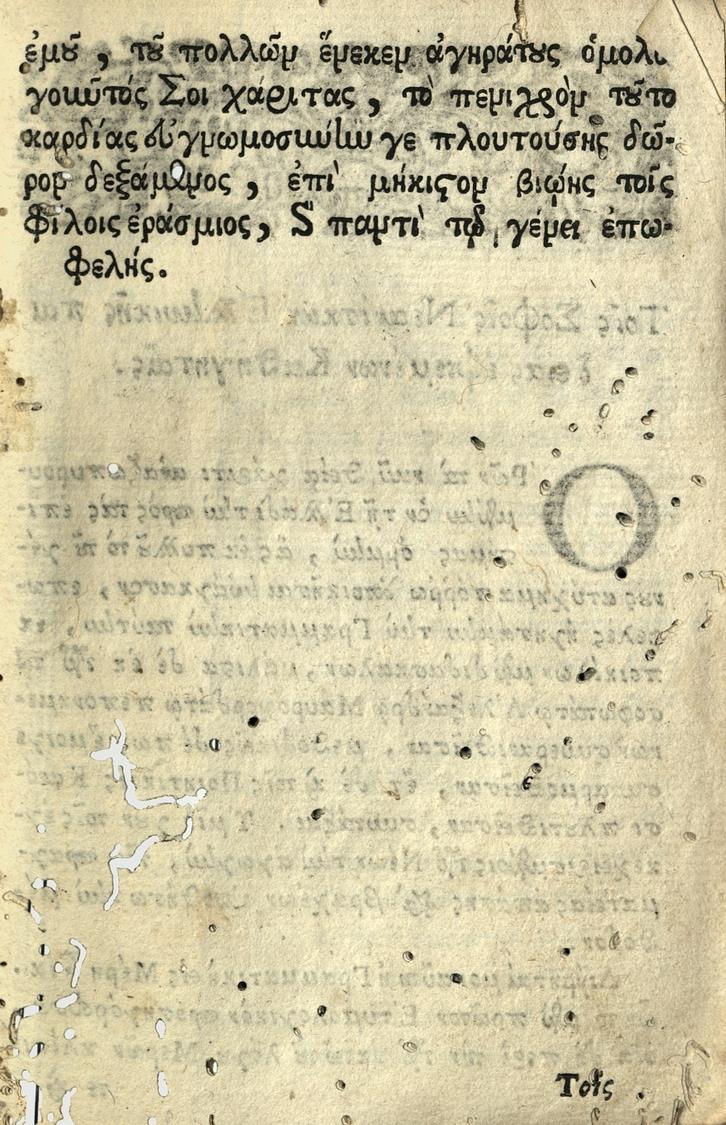 ἐμοῦ, τοῦ πολλῶν ἕνεκεν ἀγηράτους ὁμολο
γοιῶτός Σοι χάριτας, τὸ πενιχρὸν τοῦτο
καρδίας εὐγνωμοσιώην γε πλουτούσης δῶ-
ρον δεξάμενος, ἐπὶ μήκιστον βιῴης τοῖς
φίλοις ἐράσμιος, καὶ παντὶ τῷ γένει ἐπω-
φελής.
Τοῖς